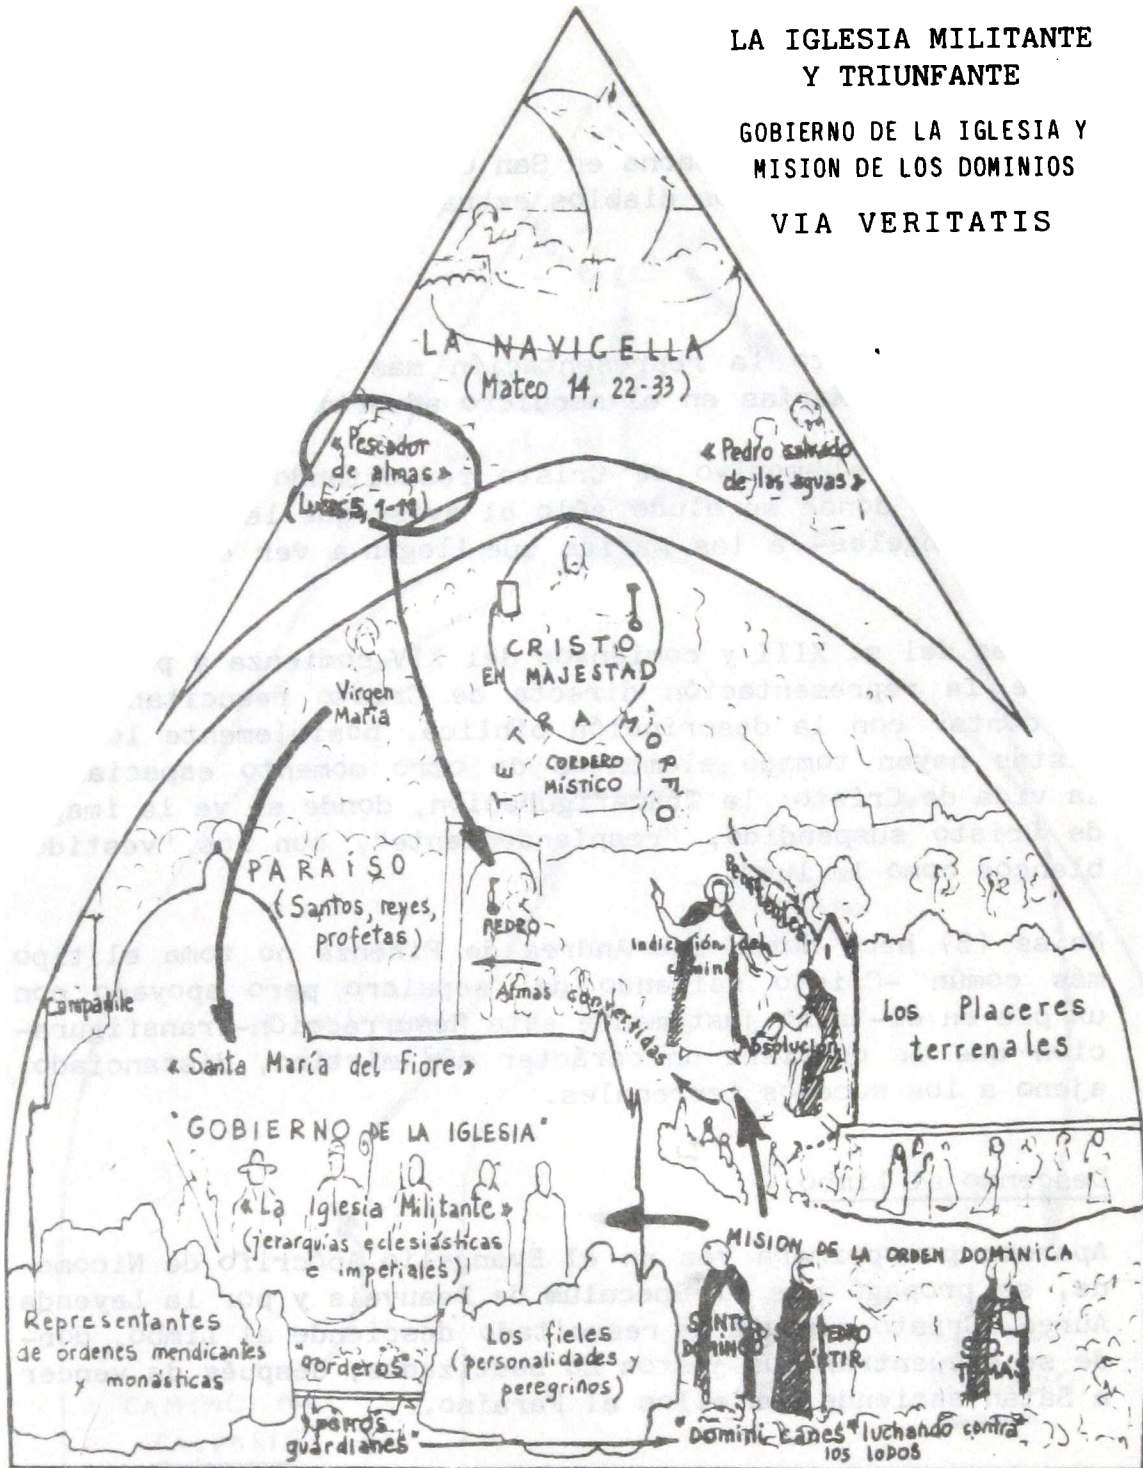 LA IGLESIA MILITANTE
Y TRIUNFANTE
GOBIERNO DE LA IGLESIA Y
MISION DE LOS DOMINIOS
VIA VERITATIS
LA NAVICELLA
(Mateo 14, 22-33)
«Pescador
de almas»
(Lucas 5, 1-11)
«Pedro salvado
de las aguas»
CRISTO
EN MAJESTAD
TETRAMORFO
CORDERO
MÍSTICO
Virgen
María
PARAISO
(Santos, reyes,
profetas)
PEDRO
Almas convertidas
Penitentes
Indicación del
camino
Absolución
Los Placeres
terrenales
Campanile
«Santa María del Fiore»
"GOBIERNO DE LA IGLESIA"
«La Iglesia Militante»
(jerarquías eclesiásticas
e imperiales)
MISION DE LA ORDEN DOMINICA
Representantes
de órdenes mendicantes
y monásticas
"corderos"
Los fieles
(personalidades y
peregrinos)
SANTO
DOMINGO
PEDRO
MÁRTIR
STO.
TOMÁS
"perros
guardianes"
"Domini canes" luchando contra
los lobos